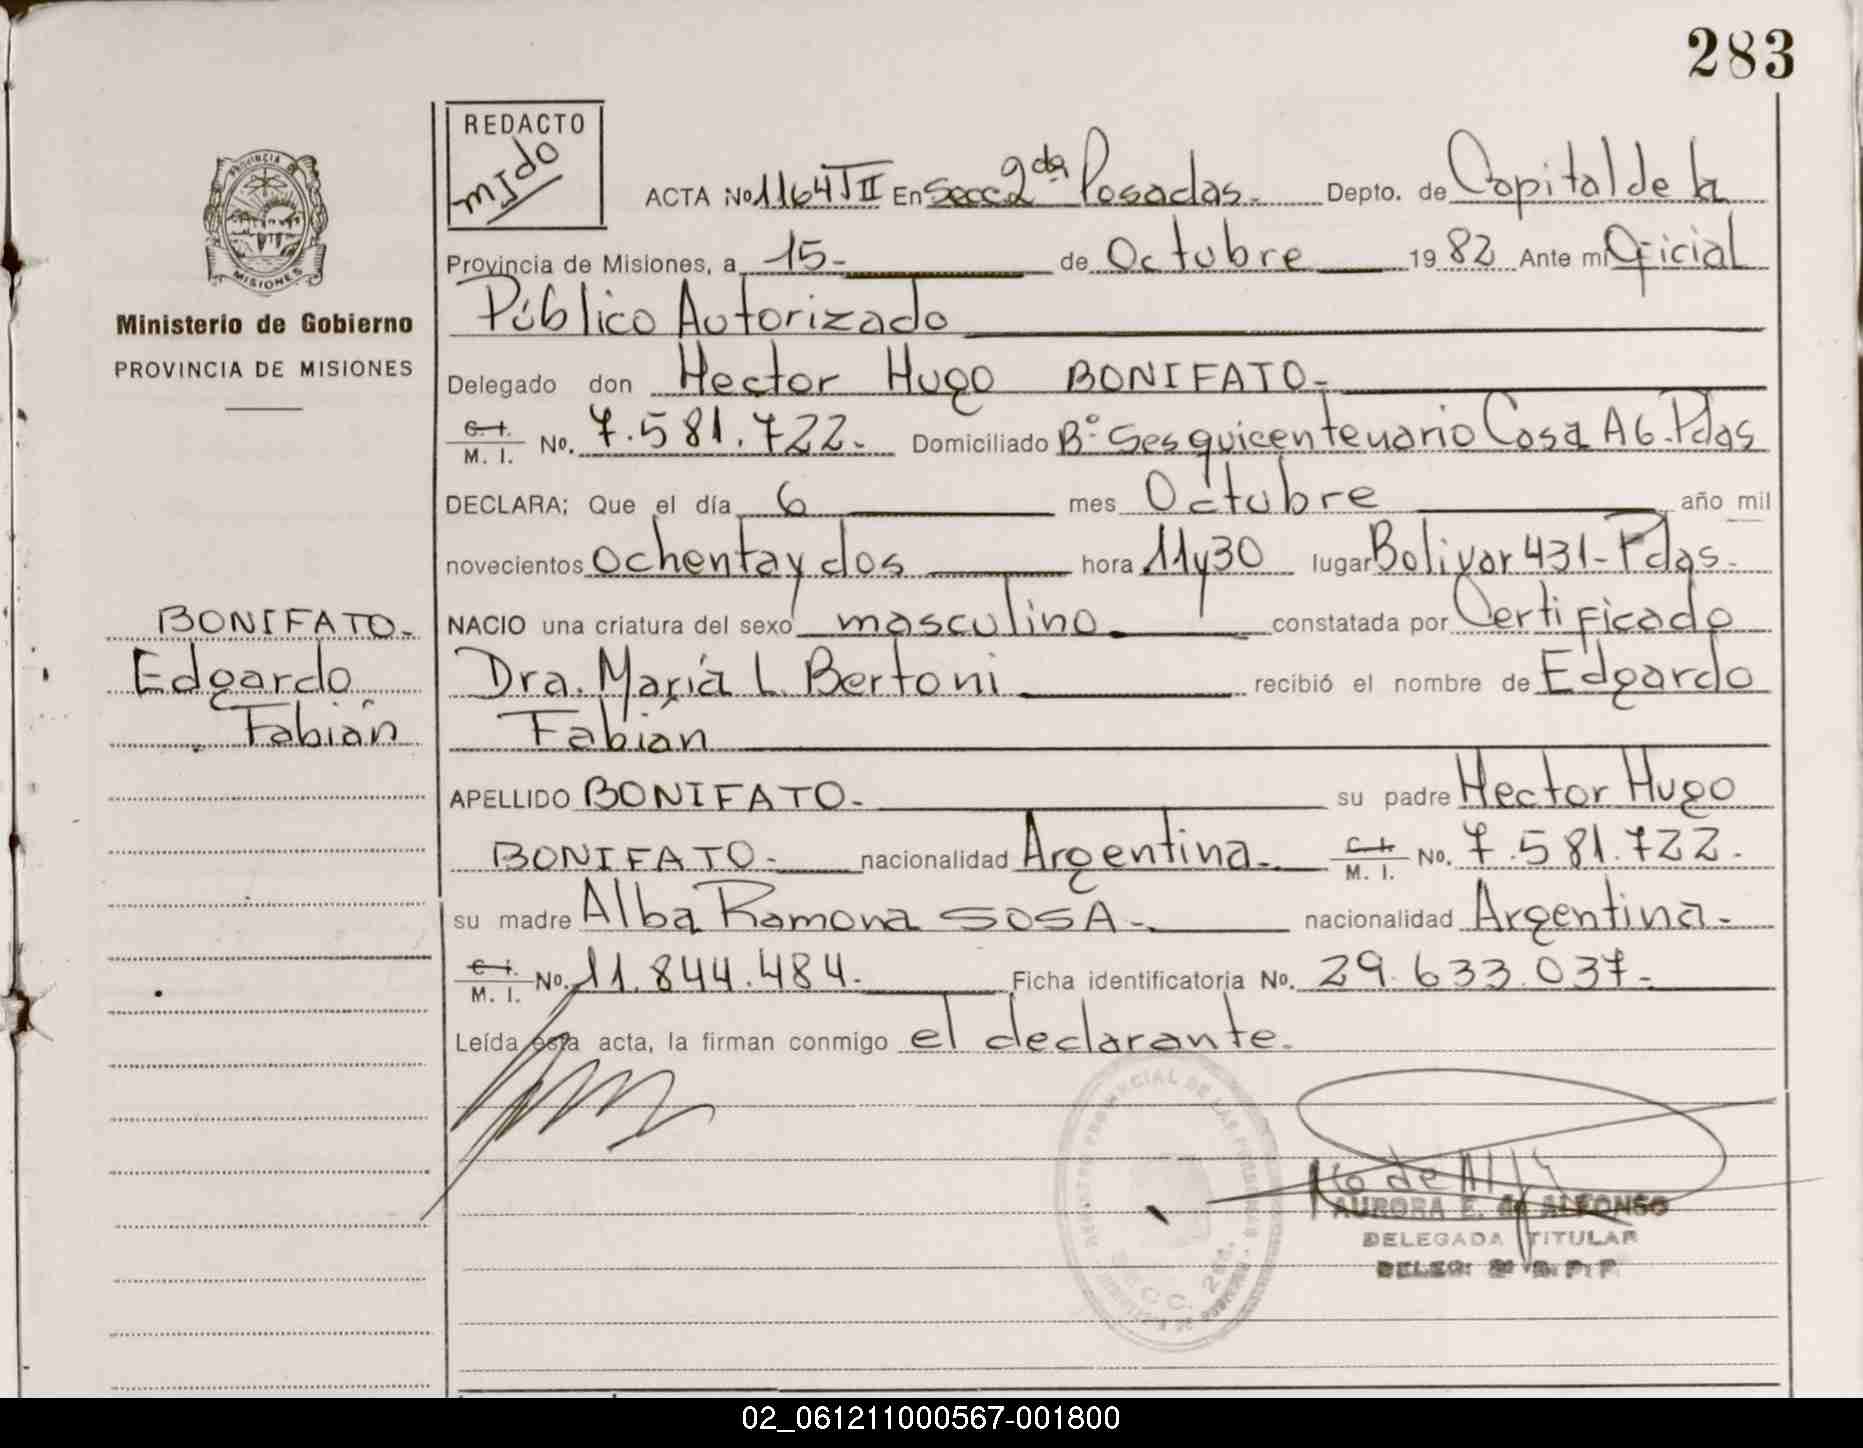 283
REDACTO
mido
PROVINCIA
MISIONES
Ministerio de Gobierno
PROVINCIA DE MISIONES
ACTA No 1164 T II En Secc 2da Posadas. Depto. de Capital de la
Provincia de Misiones, a 15- de Octubre 1982 Ante mi Oficial
Público Autorizado
Delegado don Hector Hugo BONIFATO-
C. I. / M. I. No. 7.581.722. Domiciliado B° Sesquicentenario Casa A6-Pdas
DECLARA; Que el día 6 mes Octubre año mil
novecientos ochenta y dos hora 11y30 lugar Bolivar 431-Pdas-
BONIFATO-
Edgardo
Fabián
NACIO una criatura del sexo masculino constatada por Certificado
Dra. María L. Bertoni recibió el nombre de Edgardo
Fabián
APELLIDO BONIFATO- su padre Hector Hugo
BONIFATO- nacionalidad Argentina- C. I. / M. I. No. 7.581.722-
su madre Alba Ramona SOSA- nacionalidad Argentina-
C. I. / M. I. No. 11.844.484- Ficha identificatoria No. 29.633.037-
Leída esta acta, la firman conmigo el declarante-
PROVINCIAL DE LAS PERSONAS
SECC. 2da.
AURORA E. de ALFONSO
DELEGADA TITULAR
02_061211000567-001800